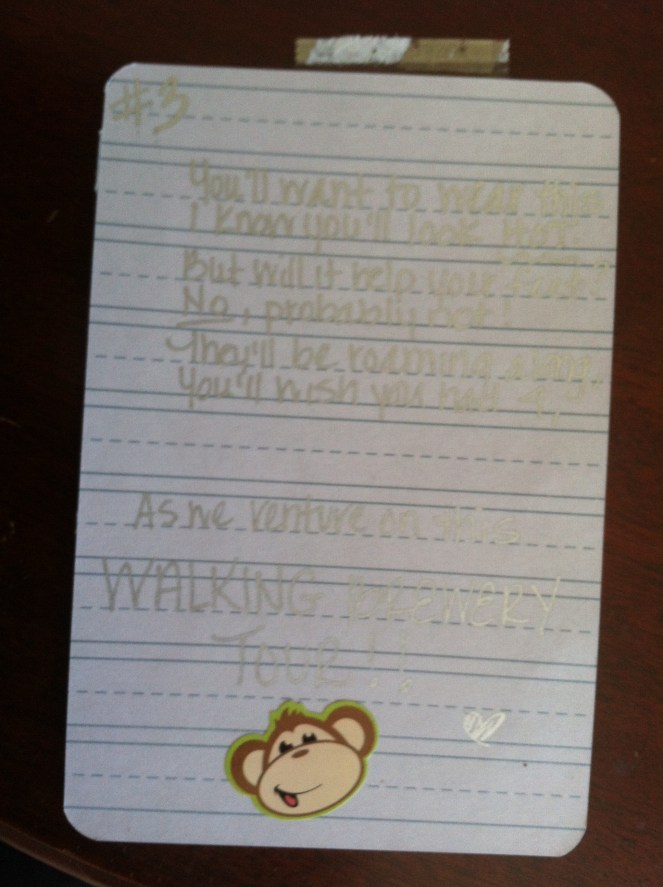 #3
You'll want to wear this
I know you'll look HOT.
But will it help your feet?
No, probably not!
They'll be roaming
You'll wish you had 4,
As we venture on this
WALKING BREWERY
TOUR!!